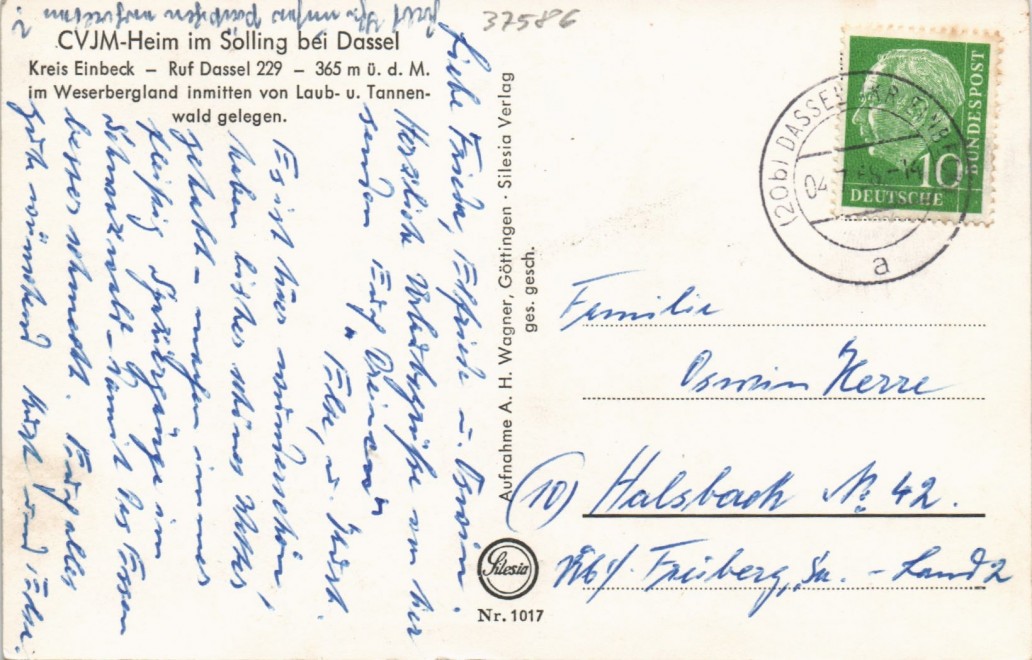 37586
CVJM-Heim im Solling bei Dassel
Kreis Einbeck – Ruf Dassel 229 – 365 m ü. d. M.
im Weserbergland inmitten von Laub- u. Tannen-
wald gelegen.
Liebe Frieda, Elfriede u. Osmin.
Herzliche Urlaubsgrüße von hier
senden Euch Dreien
Else, u. Kurt
Es ist hier wunderschön,
haben bisher schönes Wetter
gehabt – machen immer
fleißig Spaziergänge im
Schwarzwald – damit das Essen
besser schmeckt. Euch alles
Gute wünschend Kurt und Else.
Aufnahme A. H. Wagner, Göttingen · Silesia Verlag
ges. gesch.
Silesia
Nr. 1017
(20b) DASSEL KR EINB
04
a
10
DEUTSCHE
BUNDESPOST
Familie
Osmin Herre
(10) Halsbach No 42.
üb/ Freiberg, Sa. – Land 2